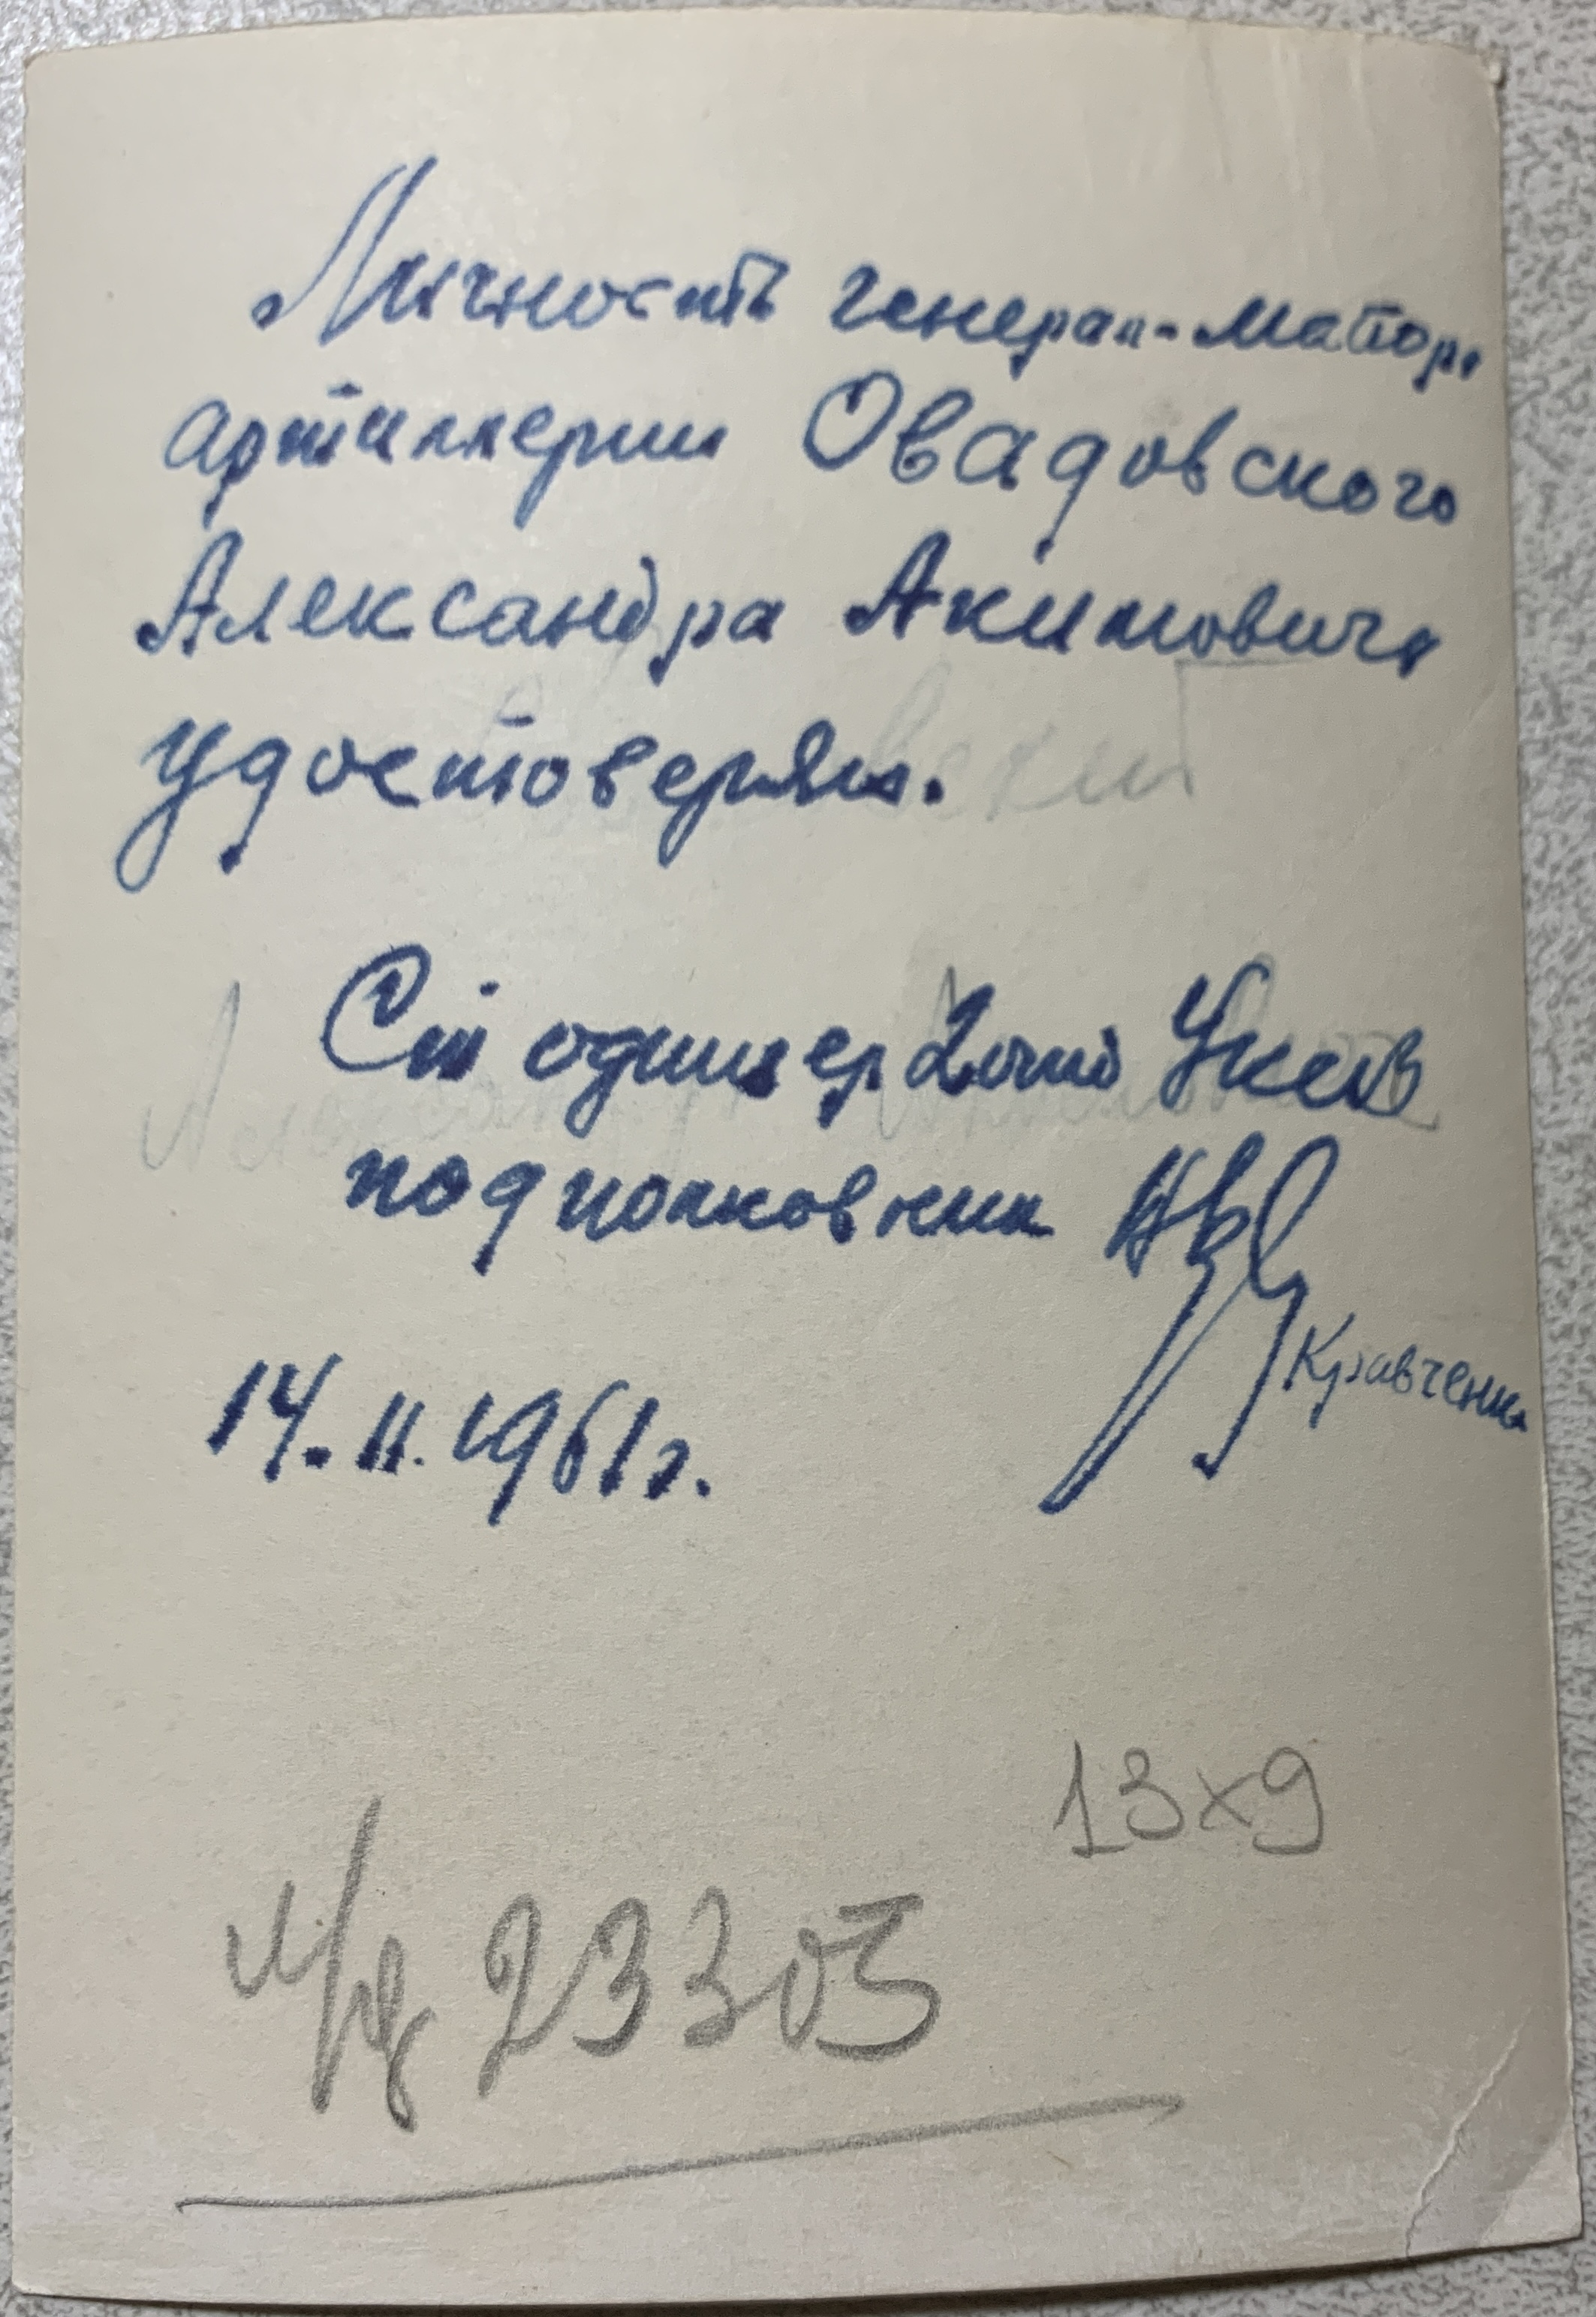 Личность генерал-майора
артиллерии Овадовского
Александра Акимовича
удостоверяю.
Ст офицер
подполковник
Кравченко
14.II.1961г.
13х9
23305